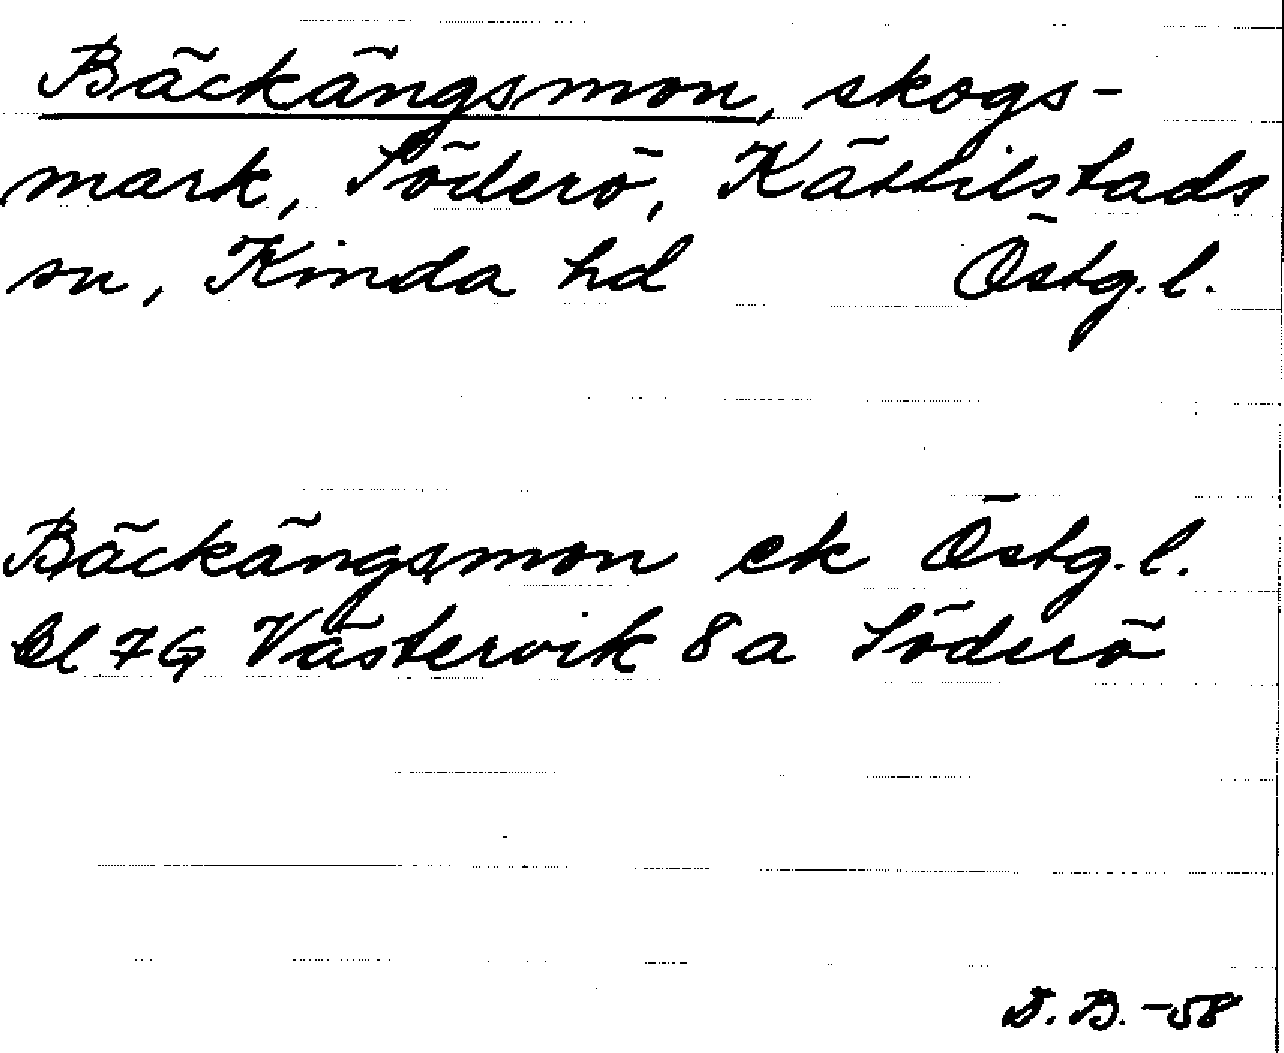 Bäckängsmon, skogs-
mark, Söderö, Kättilstads
sn, Kinda hd Östg. l.
Bäckängsmon ek Östg. l.
Bl 7G Västervik 8a Söderö
D. B. -58